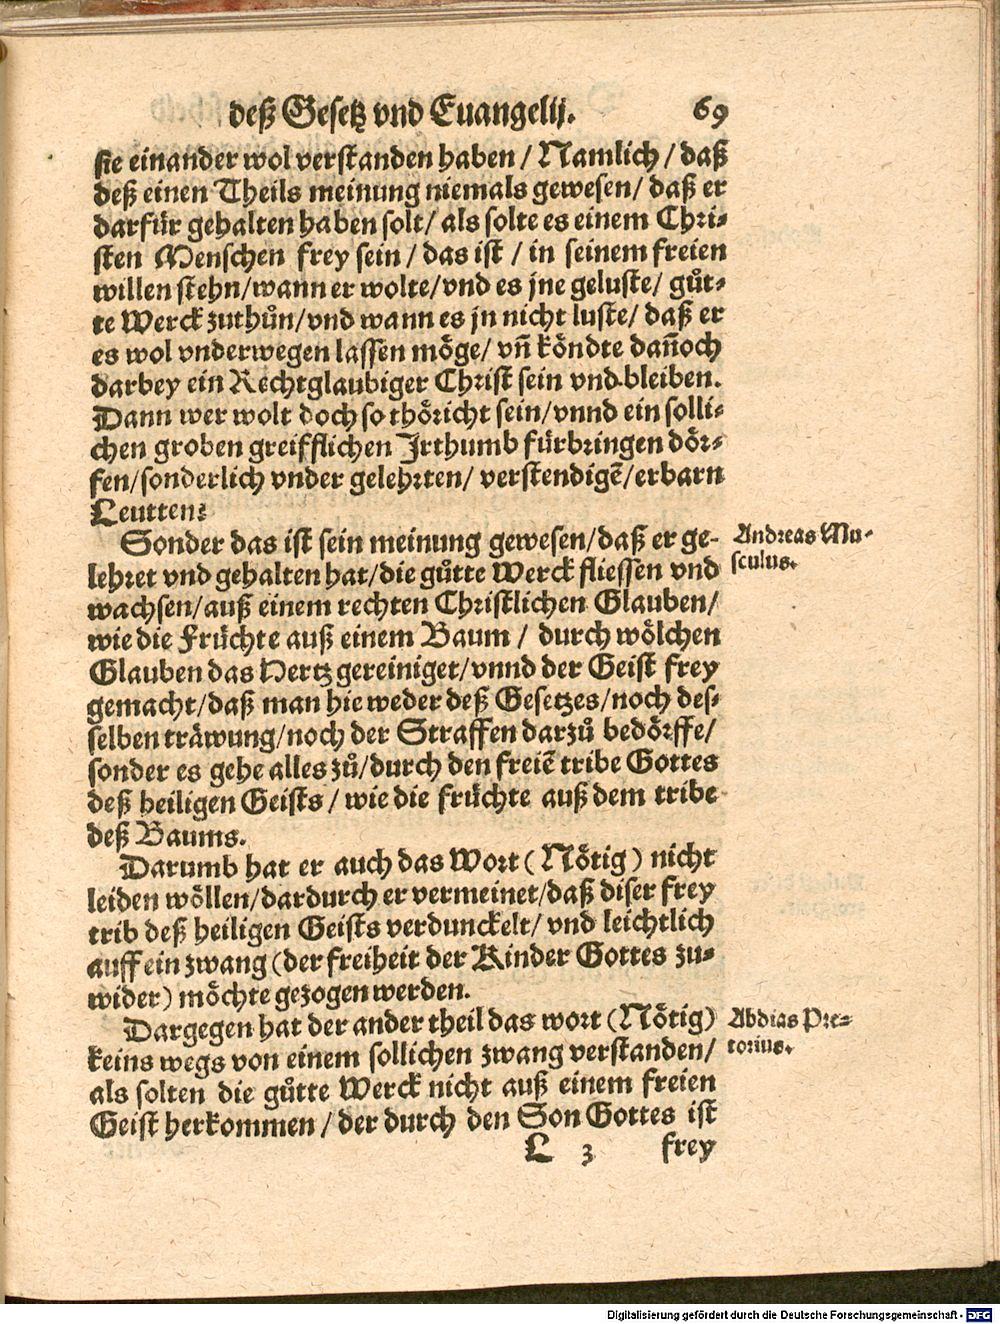 deß Gesetz vnd Euangelij. 69
sie einander wol verstanden haben / Namlich / daß
deß einen Theils meinung niemals gewesen / daß er
darfür gehalten haben solt / als solte es einem Chri-
sten Menschen frey sein / das ist / in seinem freien
willen stehn / wann er wolte / vnd es jne geluste / gůt-
te Werck zuthůn / vnd wann es jn nicht luste / daß er
es wol vnderwegen lassen möge / vñ köndte dañoch
darbey ein Rechtglaubiger Christ sein vnd bleiben.
Dann wer wolt doch so thöricht sein / vnnd ein solli-
chen groben greifflichen Jrthumb fürbringen dör-
fen / sonderlich vnder gelehrten / verstendigẽ / erbarn
Leutten?
Sonder das ist sein meinung gewesen / daß er ge-
lehret vnd gehalten hat / die gůtte Werck fliessen vnd
wachsen / auß einem rechten Christlichen Glauben /
wie die Früchte auß einem Baum / durch wölchen
Glauben das Hertz gereiniget / vnnd der Geist frey
gemacht / daß man hie weder deß Gesetzes / noch des-
selben träwung / noch der Straffen darzů bedörffe /
sonder es gehe alles zů / durch den freiẽ tribe Gottes
deß heiligen Geists / wie die früchte auß dem tribe
deß Baums.
Andreas Mu-
sculus.
Darumb hat er auch das Wort ( Nötig ) nicht
leiden wöllen / dardurch er vermeinet / daß diser frey
trib deß heiligen Geists verdunckelt / vnd leichtlich
auff ein zwang ( der freiheit der Kinder Gottes zu-
wider ) möchte gezogen werden.
Dargegen hat der ander theil das wort ( Nötig )
keins wegs von einem sollichen zwang verstanden /
als solten die gůtte Werck nicht auß einem freien
Geist herkommen / der durch den Son Gottes ist
Abdias Pre-
torius.
L 3 frey
Digitalisierung gefördert durch die Deutsche Forschungsgemeinschaft - DFG